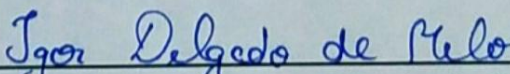 Igor Delgado de Melo